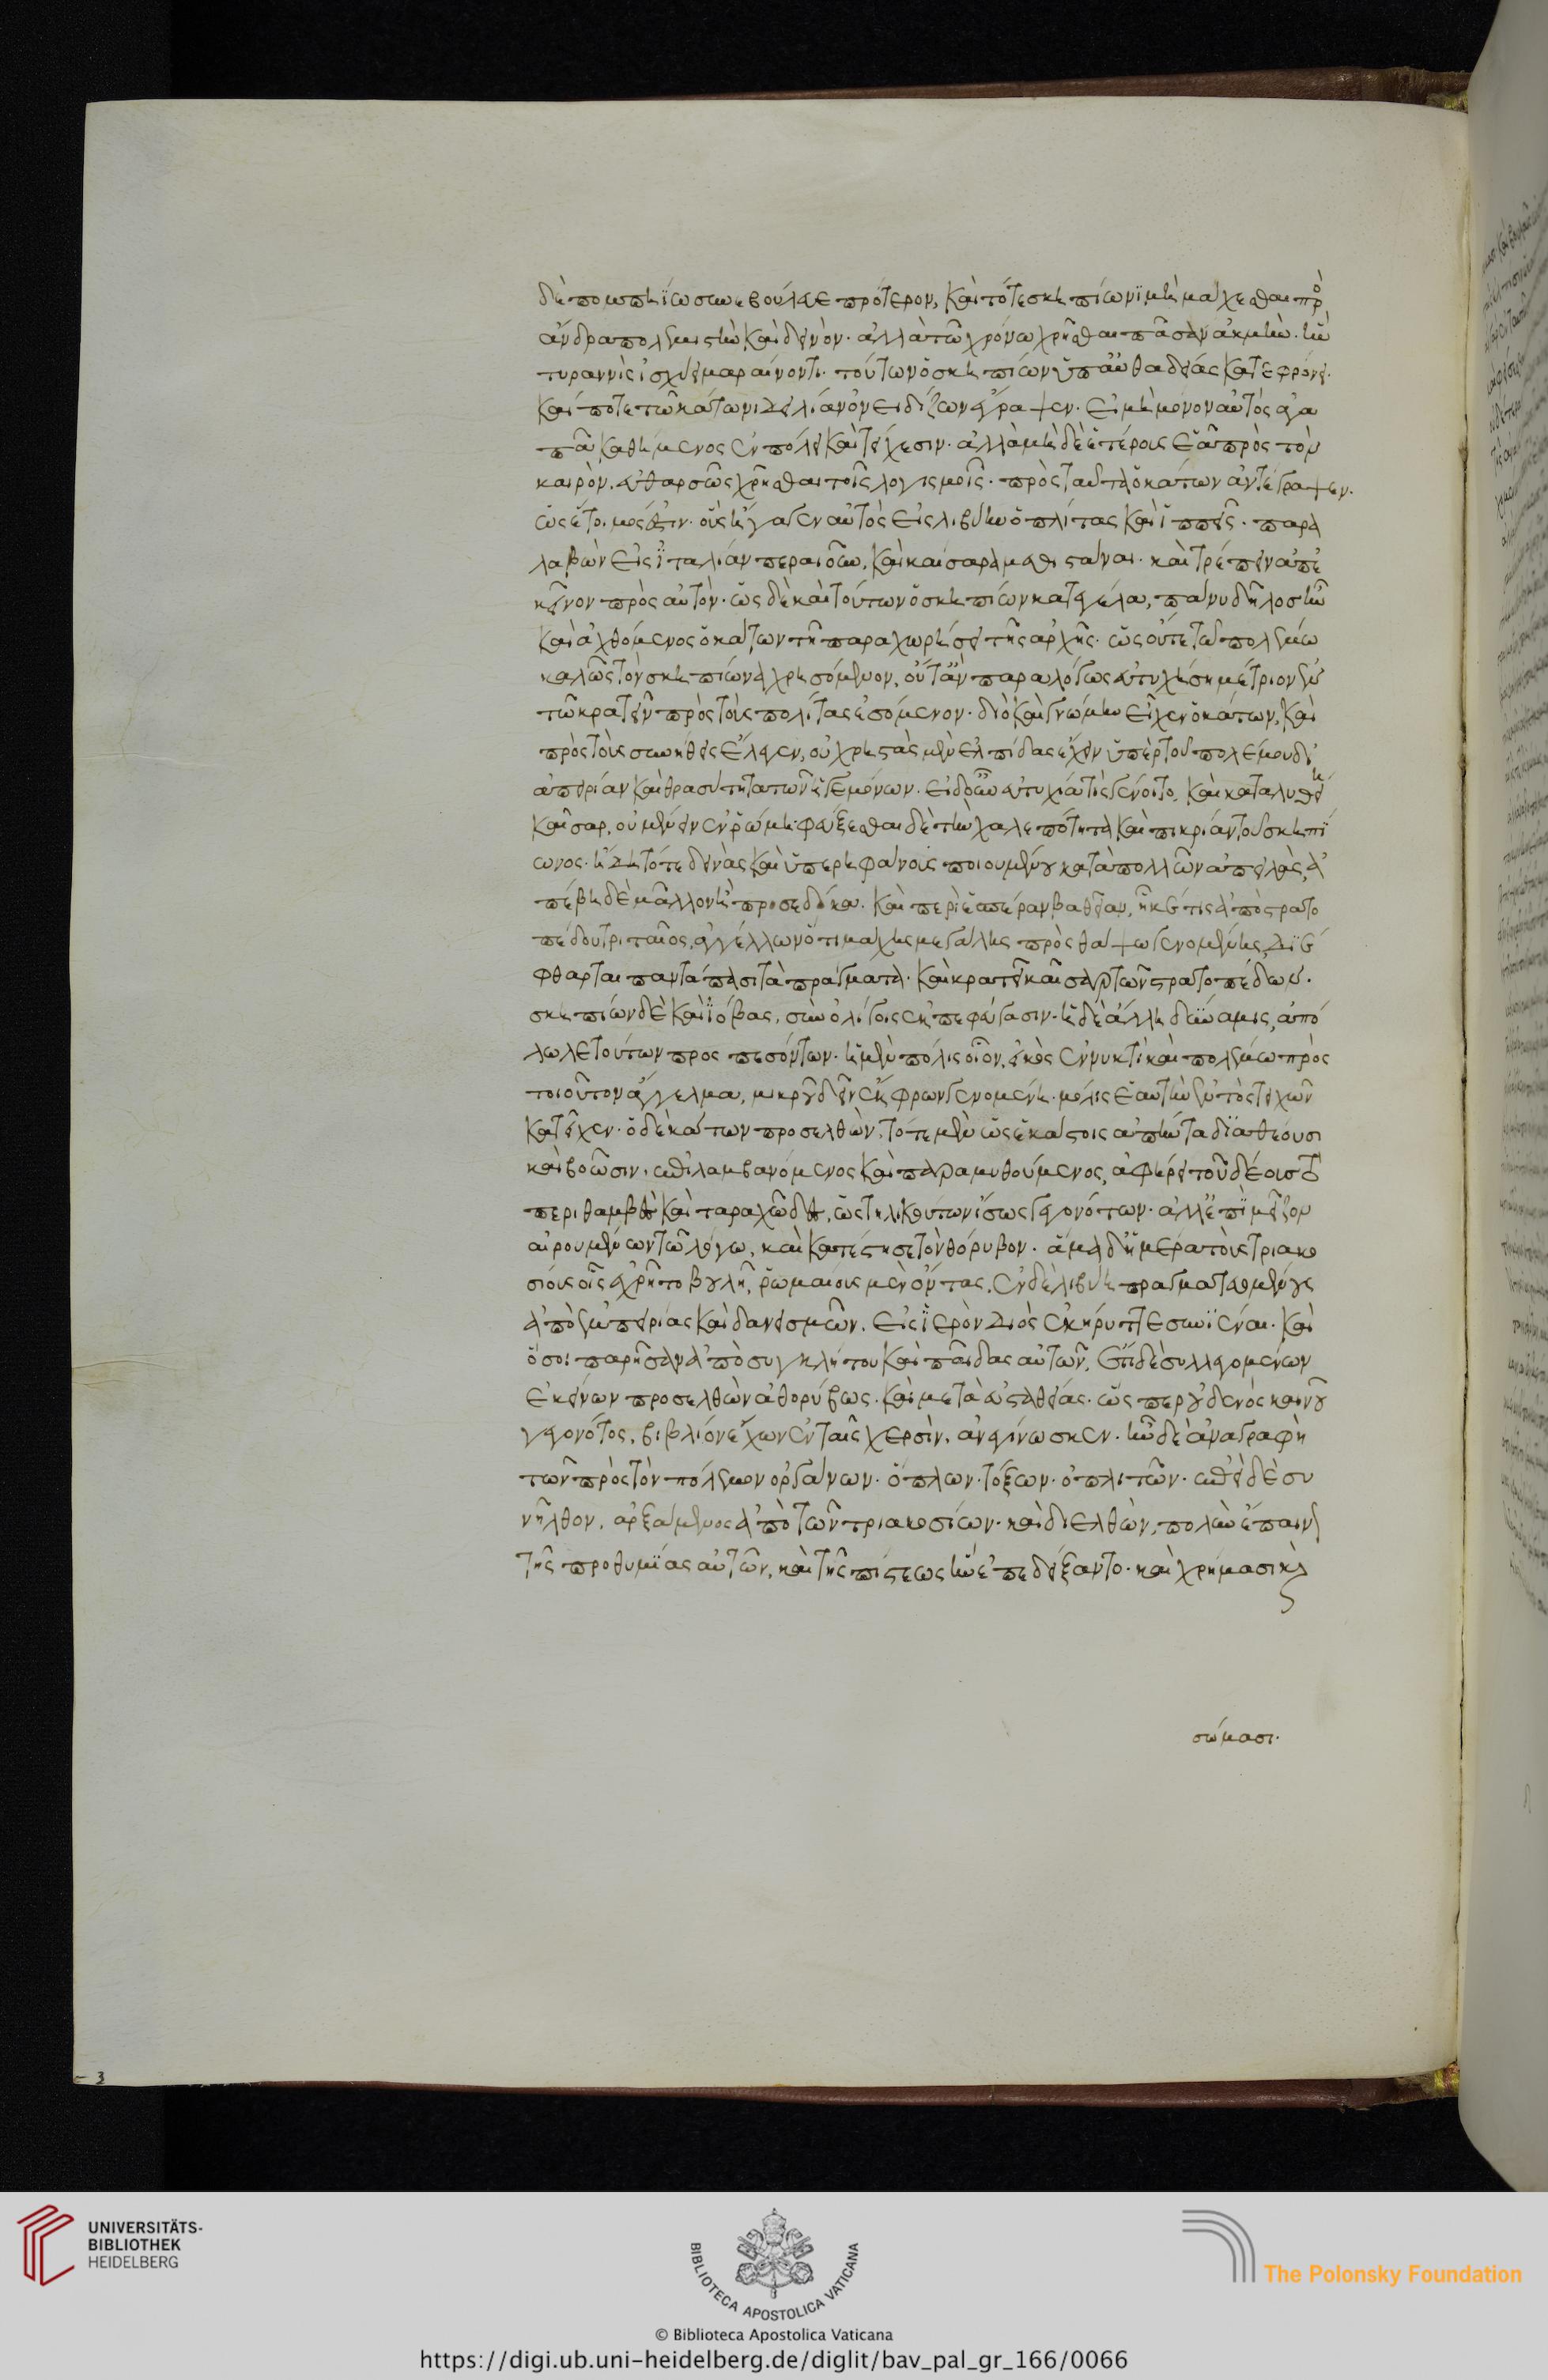 δὲ πομπηΐω συνεβούλευε πρότερον, καὶ τότε σκηπίωνϊ μὴ μάχεσθαι πρὸ
ἄνδρα πολεμιστὴν καὶ δεινόν· ἀλλὰ τῶ χρόνω χρῆσθαι πᾶσαν ἀκμὴν· ἣν
τυραννὶς ἰσχύει μαραίνοντι· τούτων ὁ σκηπίων ὑπ' αὐθαδείας κατεφρόνει·
καί ποτε τῶ κάτωνι δειλίαν ὀνειδίζων ἔγραψεν· εἰ μὴ μόνον αὐτὸς ἀγα
πᾶ καθήμενος ἐν πόλει καὶ τείχεσιν· ἀλλὰ μὴ δὲ ἑτέροις ἐᾶ πρὸς τὸν
καιρὸν, εὐθαρσῶς χρῆσθαι τοῖς λογισμοῖς· πρὸς ταῦτα ὁ κάτων ἀντέγραψεν·
ὡς ἕτοιμός ἐστιν· οὓς ἤγαγεν αὐτὸς εἰς λιβύην ὁπλίτας καὶ ἱππεῖς· παρα
λαβὼν εἰς ἰταλίαν περαιοῦν, καὶ καίσαρα μεθιστάναι· καὶ τρέπειν ἀπ' ἐ
κεῖνον πρὸς αὐτὸν· ὡς δὲ καὶ τούτων ὁ σκηπίων κατεγέλα, πάνυ δῆλος ἦν
καὶ ἀχθόμενος ὁ κάτων τῆ παραχωρήσει τῆς ἀρχῆς· ὡς οὔτε τῶ πολέμω
καλῶς τὸν σκηπίωνα χρησόμενον, οὔτ' ἂν παραλόγως εὐτυχήση μέτριον ἐν
τῶ κρατεῖν πρὸς τοὺς πολίτας ἐσόμενον· διὸ καὶ γνώμην εἶχεν ὁ κάτων, καὶ
πρὸς τοὺς συνήθεις ἔλεγεν, οὐ χρηστὰς μὲν ἐλπίδας ἔχειν ὑπὲρ τοῦ πολέμου δι'
ἀπειρίαν καὶ θρασύτητα τῶν ἡγεμόνων· εἰ δ' οὖν εὐτυχία τὶς γένοιτο, καὶ καταλυθείη
καῖσαρ, οὐ μενεῖν ἐν ῥώμη· φεύξεσθαι δὲ τὴν χαλεπότητα καὶ πικρίαν τοῦ σκηπί
ωνος· ἤδη τότε δεινὰς καὶ ὑπερηφάνους ποιουμένου κατὰ πολλῶν ἀπειλὰς, ἀ
πέβη δὲ μᾶλλον ἢ προσεδόκα· καὶ περὶ ἑσπέραν βαθεῖαν, ἧκέ τις ἀπὸ στρατο
πέδου τριταῖος, ἀγγέλλων ὅτι μάχης μεγάλης πρὸς θάψω γενομένης, διέ
φθαρται παντάπασι τὰ πράγματα· καὶ κρατεῖ καῖσαρ τῶν στρατοπέδων·
σκηπίων δὲ καὶ ἰόβας, σὺν ὀλίγοις ἐκπεφεύγασιν· ἡ δὲ ἄλλη δύναμις, ἀπό
λωλε τούτων προσπεσόντων· ἡ μὲν πόλις οἷον, εἰκὸς ἐν νυκτὶ καὶ πολέμω πρὸς
τοιοῦτον ἄγγελμα, μικροῦ δεῖν ἔκφρων γενομένη· μόλις ἑαυτὴν ἐντὸς τειχῶν
κατεῖχεν· ὁ δὲ κάτων προσελθὼν, τότε μὲν ὡς ἑκάστοις ἀπήντα διαθέουσι
καὶ βοῶσιν, ἐπιλαμβανόμενος καὶ παραμυθούμενος, ἀφήρει τοῦ δέους τὸ
περιθαμβὲς καὶ ταραχῶδες, ὡς τηλικούτων ἴσως γεγονότων· ἀλλ' ἐπὶ μεῖζον
αἰρουμένων τῶ λόγω, καὶ κατέστησε τὸν θόρυβον· ἅμα δ' ἡμέρα τοὺς τριακο
σίους οἷς ἐχρῆτο βουλῆ, ῥωμαίους μὲν ὄντας, ἐν δὲ λιβύη πραγματευομένους
ἀπὸ ἐμπορίας καὶ δανεισμῶν, εἰς ἱερὸν διὸς ἐκήρυττε συνϊέναι· καὶ
ὅσοι παρῆσαν ἀπὸ συγκλήτου καὶ παῖδας αὐτῶν, ἔτι δὲ συλλεγομένων
ἐκείνων προσελθὼν ἀθορύβως· καὶ μετὰ εὐσταθείας· ὥς περ οὐδενὸς καινοῦ
γεγονότος, βιβλίον ἔχων ἐν ταῖς χερσὶν, ἀνεγίνωσκεν· ἦν δὲ ἀναγραφὴ
τῶν πρὸς τὸν πόλεμον ὀργάνων· ὅπλων· τόξων· ὁπλιτῶν· ἐπεὶ δὲ συ
νῆλθον, ἀρξάμενος ἀπὸ τῶν τριακοσίων· καὶ διελθὼν, πολὺν ἔπαινον
τῆς προθυμίας αὐτῶν, καὶ τῆς πίστεως ἣν ἐπεδείξαντο· καὶ χρήμασι καὶ
σώμασι·
3
UNIVERSITÄTS-
BIBLIOTHEK
HEIDELBERG
BIBLIOTECA APOSTOLICA VATICANA
The Polonsky Foundation
© Biblioteca Apostolica Vaticana
https://digi.ub.uni-heidelberg.de/diglit/bav_pal_gr_166/0066